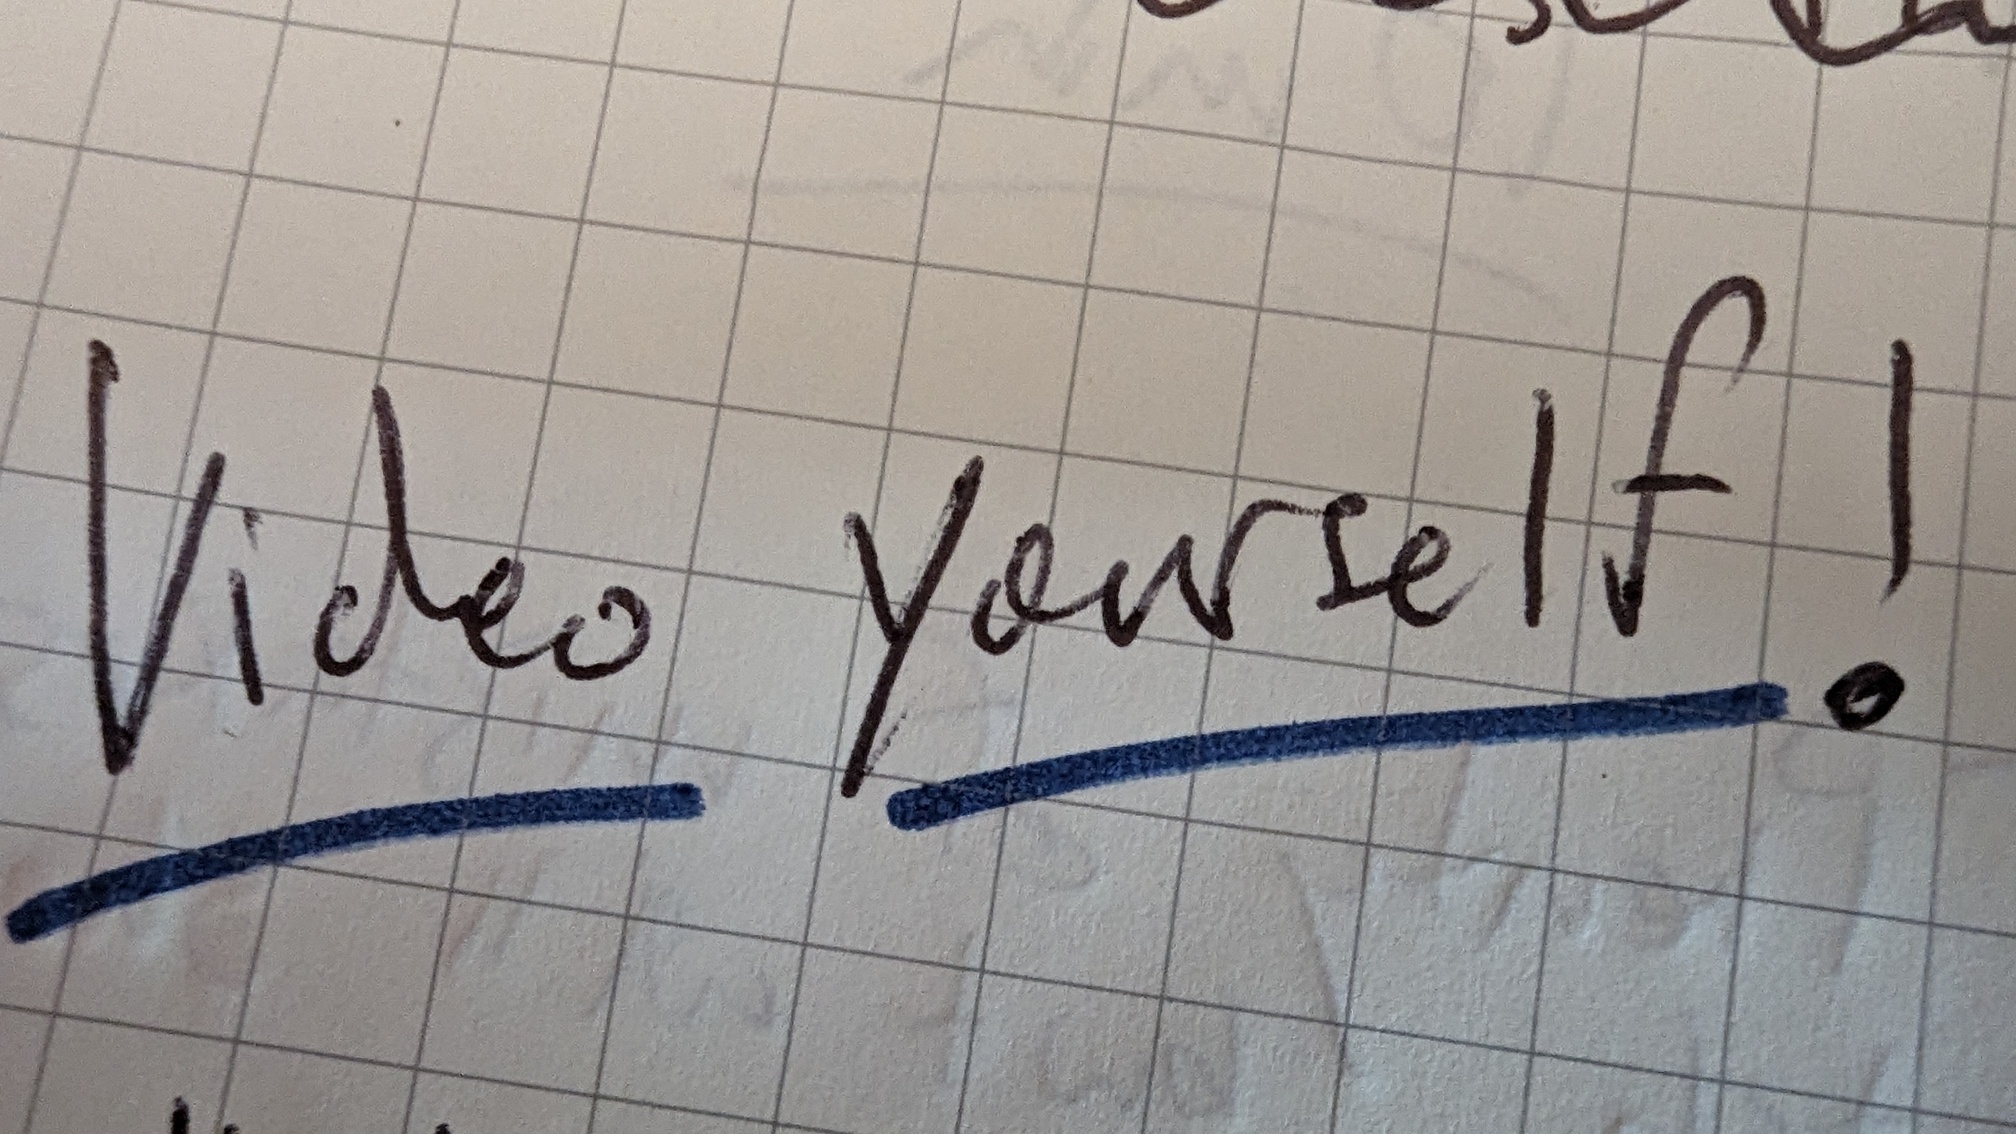 Video yourself!